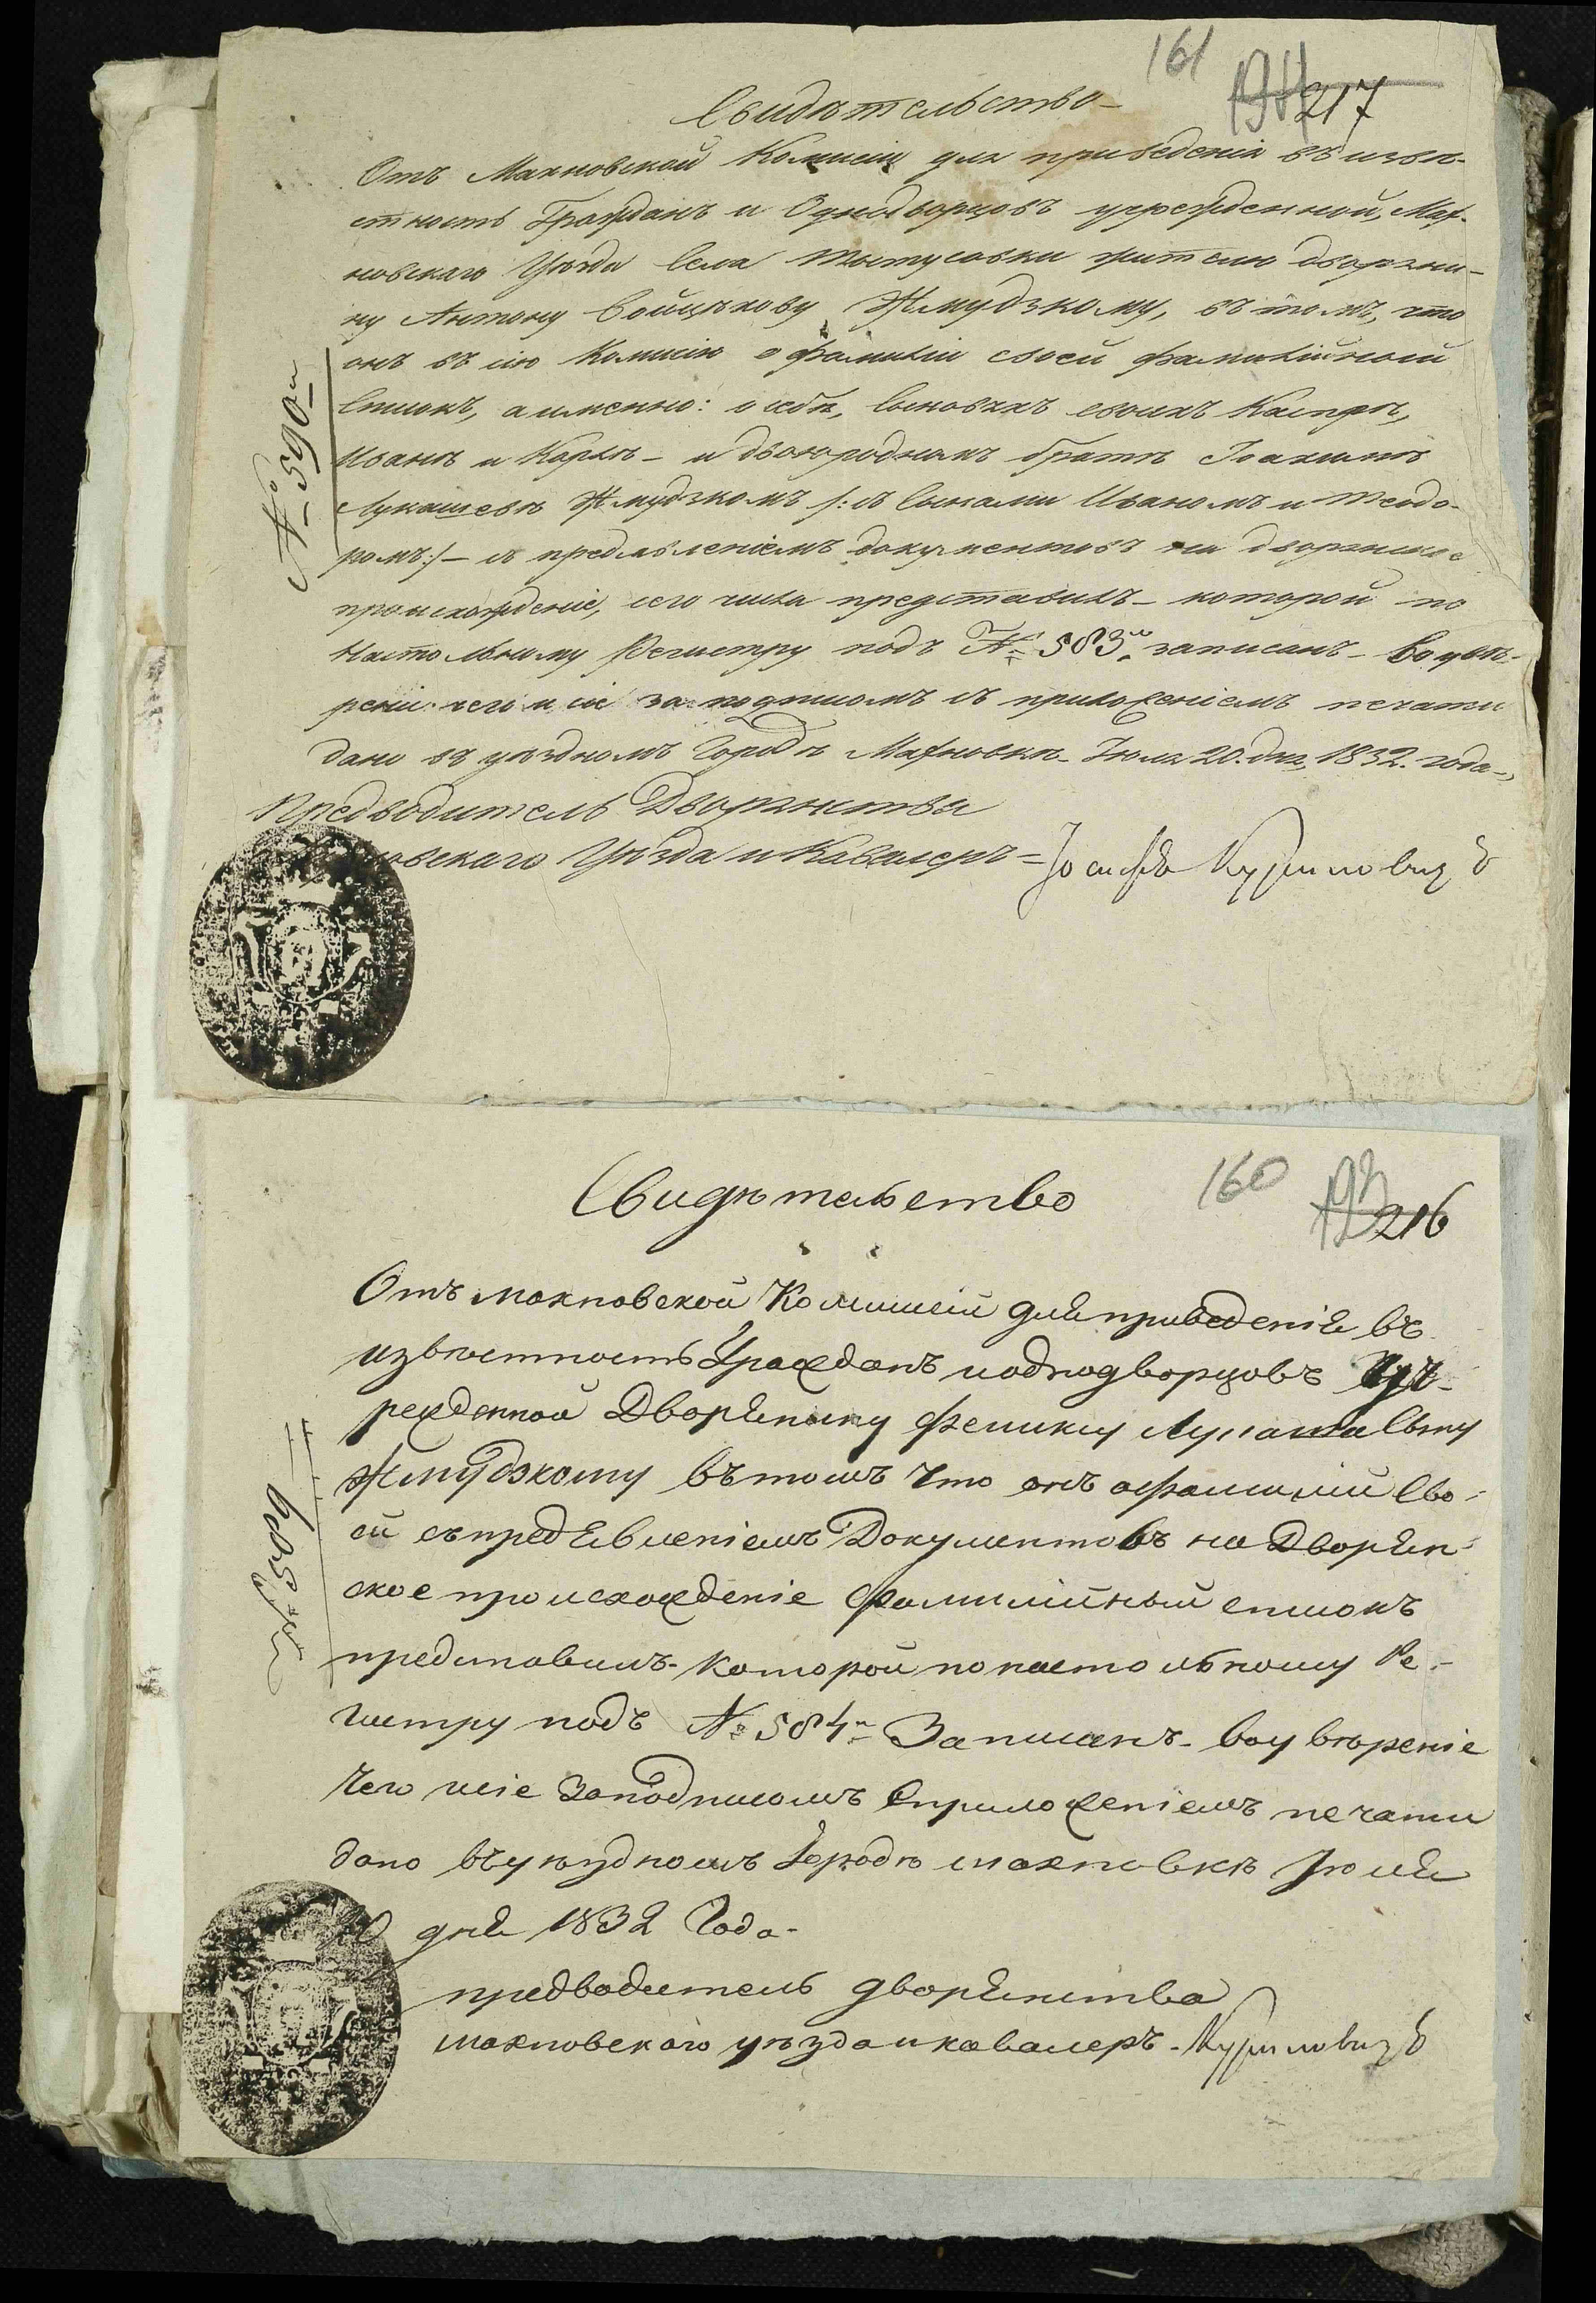 161 217
Свидѣтельство
Отъ Махновской Комисіи для приведенія въ извѣ-
стность Гражданъ и Однодворцовъ учрежденной, Мах-
новскаго Уѣзда Села Тытусовки жителю дворяни-
ну Антону Войцѣхову Жмудзкому, въ томъ, что
онъ въ сію Комисію о фамиліи своей фамилійной
Списокъ, а именно: о себѣ, Сыновяхъ своихъ Каспрѣ,
Иванѣ и Карлѣ - и двоюродномъ братѣ Іоахимѣ
Лукашевѣ Жмудзкомъ /:съ Сынами Иваномъ и Теодо-
ромъ:/ - съ предъявленіемъ документовъ на дворянское
происхожденіе, сего числа представилъ - которой по
Настольному Регистру подъ № 583м записанъ - Во увѣ-
реніи чего и сіе за подписомъ съ приложеніемъ печати
дано въ уѣздномъ Городѣ Махновкѣ Іюля 20. дня, 1832. года -
Предводитель Дворянства
новскаго Уѣзда и Кавалеръ - Іосифъ
№ 590
160 216
Свидѣтельство
Отъ махновской Комисіи для приведенія въ
извѣстность Гражданъ и однодворцовъ Уч-
режденной Дворянину Феликсу Лукаша Сыну
Жмудзкому въ томъ что онъ о фамиліи Сво-
ей съ предъявленіемъ Документовъ на Дворян-
ское происхожденіе Фамилійный списокъ
представилъ - Которой по настольному Ре-
гистру подъ № 584м Записанъ - во увѣреніе
Чего и сіе За подписомъ Съ приложеніемъ печати
дано въ уѣздномъ Городѣ махновкѣ Іюля
20 дня 1832 Года -
предводитель дворянства
махновскаго уѣзда и кавалеръ -
№ 589